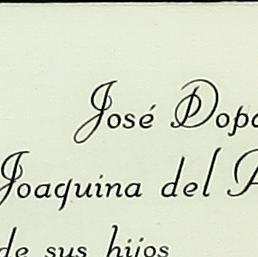 José Dopa
Joaquina del A
de sus hijos